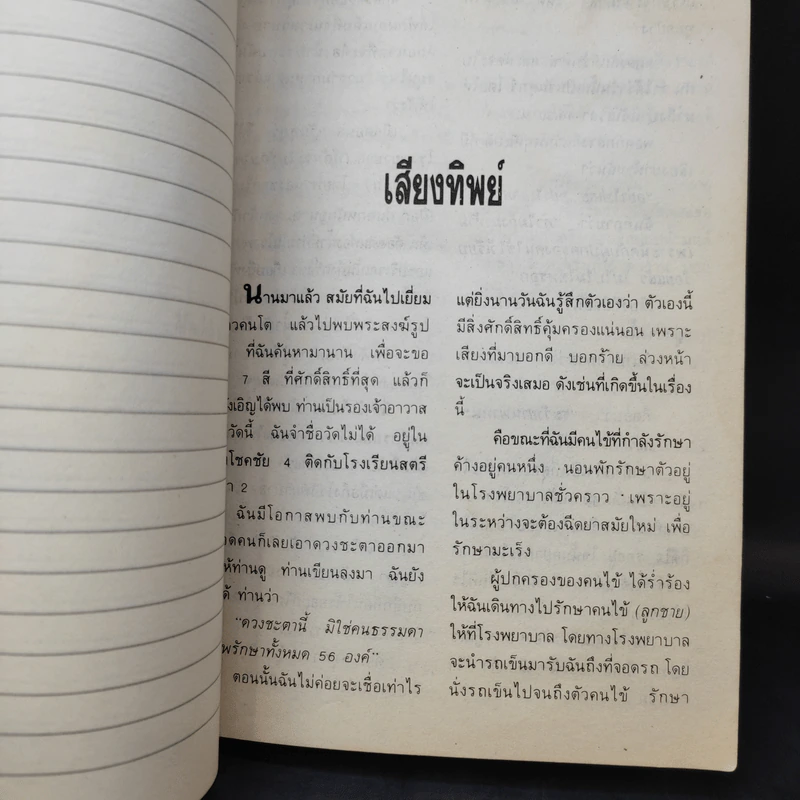 เสียงทิพย์
นานมาแล้ว สมัยที่ฉันไปเยี่ยม
วคนโต แล้วไปพบพระสงฆ์รูป
ที่ฉันค้นหามานาน เพื่อจะขอ
7 สี ที่ศักดิ์สิทธิ์ที่สุด แล้วก็
งเอิญได้พบ ท่านเป็นรองเจ้าอาวาส
วัดนี้ ฉันจำชื่อวัดไม่ได้ อยู่ใน
โชคชัย 4 ติดกับโรงเรียนสตรี
า 2
ฉันมีโอกาสพบกับท่านขณะ
ดคนก็เลยเอาดวงชะตาออกมา
ห้ท่านดู ท่านเขียนลงมา ฉันยัง
ด้ ท่านว่า
"ดวงชะตานี้ มิใช่คนธรรมดา
พรักษาทั้งหมด 56 องค์"
ตอนนั้นฉันไม่ค่อยจะเชื่อเท่าไร
แต่ยิ่งนานวันฉันรู้สึกตัวเองว่า ตัวเองนี้
มีสิ่งศักดิ์สิทธิ์คุ้มครองแน่นอน เพราะ
เสียงที่มาบอกดี บอกร้าย ล่วงหน้า
จะเป็นจริงเสมอ ดังเช่นที่เกิดขึ้นในเรื่อง
นี้
คือขณะที่ฉันมีคนไข้ที่กำลังรักษา
ค้างอยู่คนหนึ่ง นอนพักรักษาตัวอยู่
ในโรงพยาบาลชั่วคราว เพราะอยู่
ในระหว่างจะต้องฉีดยาสมัยใหม่ เพื่อ
รักษามะเร็ง
ผู้ปกครองของคนไข้ ได้ร่ำร้อง
ให้ฉันเดินทางไปรักษาคนไข้ (ลูกชาย)
ให้ที่โรงพยาบาล โดยทางโรงพยาบาล
จะนำรถเข็นมารับฉันถึงที่จอดรถ โดย
นั่งรถเข็นไปจนถึงตัวคนไข้ รักษา